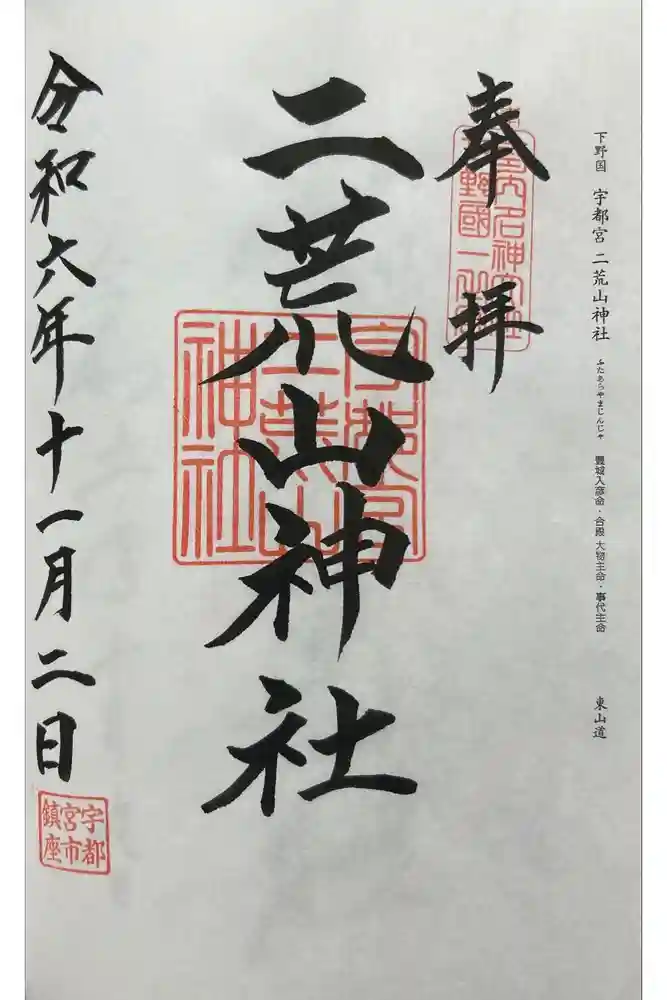 下野国 宇都宮 二荒山神社 ふたあらやまじんじゃ 豊城入彦命・合殿 大物主命・事代主命 東山道
奉拝
二荒山神社
宇都宮
二荒山
神社
令和六年十一月二日
宇都
宮市
鎮座